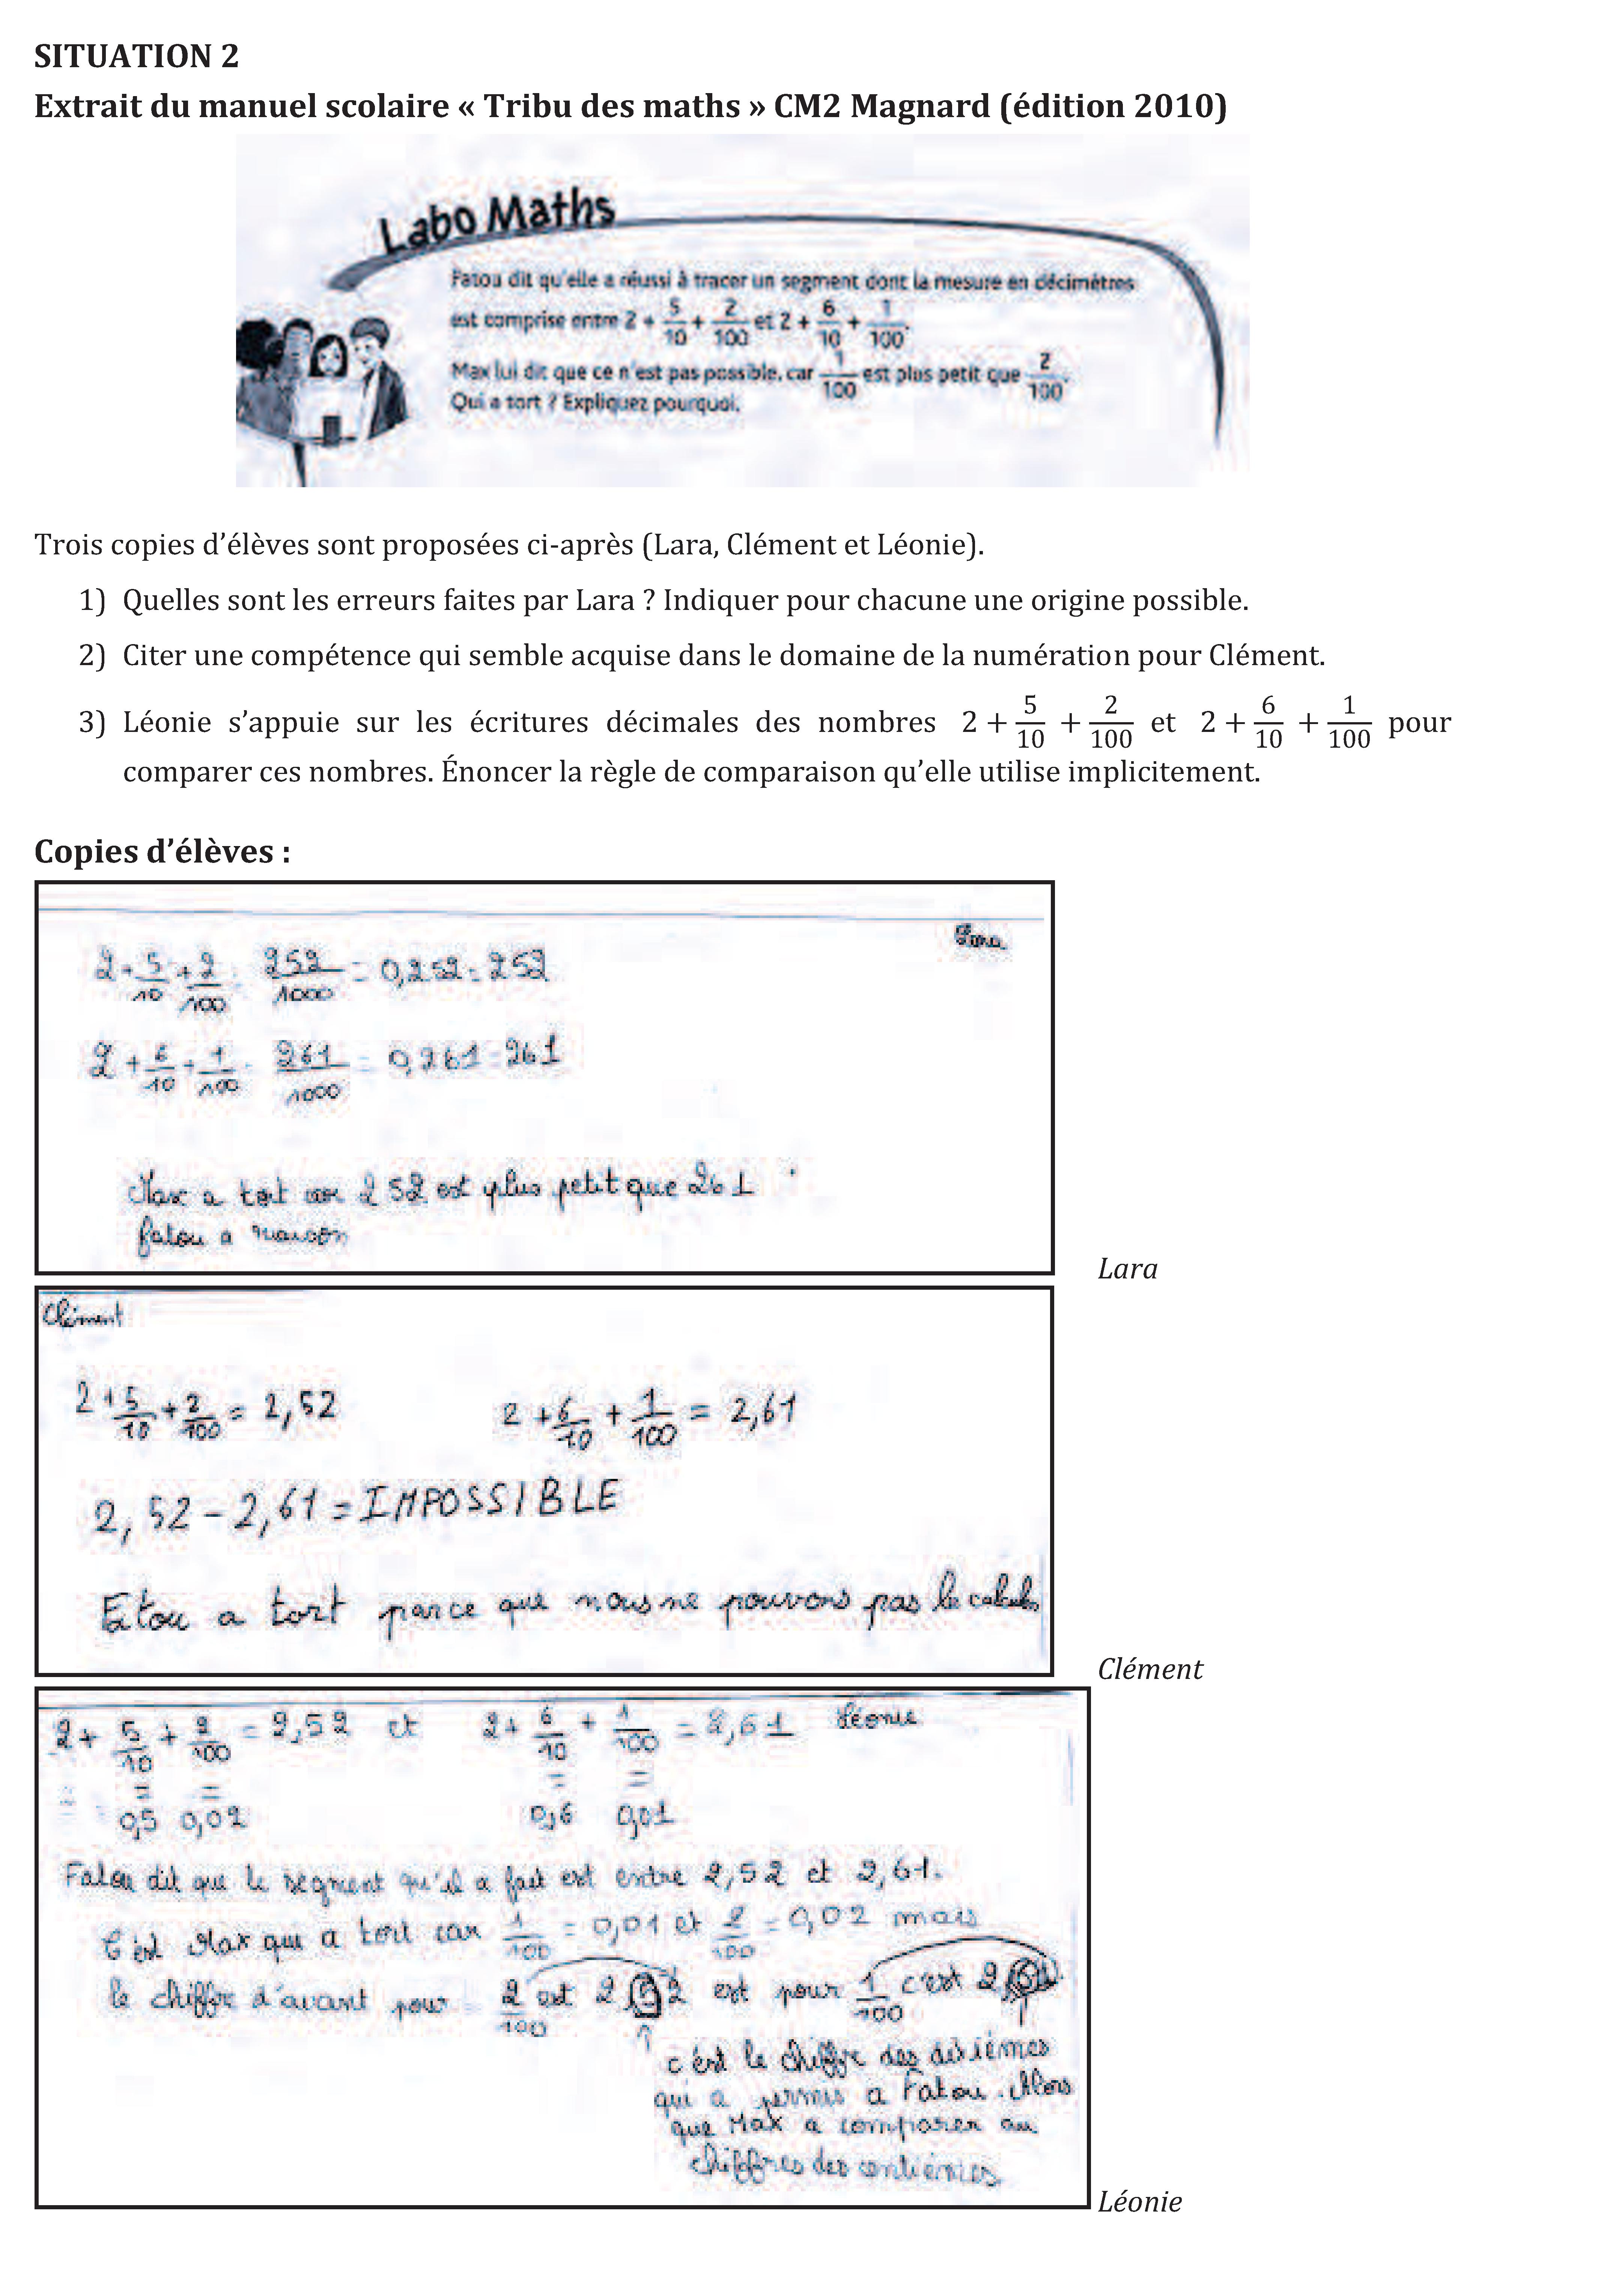 SITUATION 2
Extrait du manuel scolaire « Tribu des maths » CM2 Magnard (édition 2010)
Labo Maths
Fatou dit qu'elle a réussi à tracer un segment dont la mesure en décimètres
est comprise entre 2 + 5/10 + 2/100 et 2 + 6/10 + 1/100.
Max lui dit que ce n'est pas possible, car 1/100 est plus petit que 2/100.
Qui a tort ? Expliquez pourquoi.
Trois copies d'élèves sont proposées ci-après (Lara, Clément et Léonie).
1) Quelles sont les erreurs faites par Lara ? Indiquer pour chacune une origine possible.
2) Citer une compétence qui semble acquise dans le domaine de la numération pour Clément.
3) Léonie s'appuie sur les écritures décimales des nombres 2 + 5/10 + 2/100 et 2 + 6/10 + 1/100 pour
comparer ces nombres. Énoncer la règle de comparaison qu'elle utilise implicitement.
Copies d'élèves :
Lara
2 + 5/10 + 2/100 = 252/1000 = 0,252 = 252
2 + 6/10 + 1/100 = 261/1000 = 0,261 = 261
Max a tort car 252 est plus petit que 261
fatou a raison
Lara
Clément
2 + 5/10 + 2/100 = 2,52 2 + 6/10 + 1/100 = 2,61
2,52 - 2,61 = IMPOSSIBLE
a tort parce que nous ne pouvons pas le calculer
Clément
2 + 5/10 + 2/100 = 2,52 et 2 + 6/10 + 1/100 = 2,61 Léonie
= = = =
0,5 0,02 0,6 0,01
Fatou dit que le segment qu'il a fait est entre 2,52 et 2,61.
C'est Max qui a tort car 1/100 = 0,01 et 2/100 = 0,02 mais
le chiffre d'avant pour 2/100 est 2,52 est pour 1/100 c'est 2,61
c'est le chiffre des dixièmes
qui a permis a Fatou. Alors
que Max a comparer au
chiffres des centièmes
Léonie